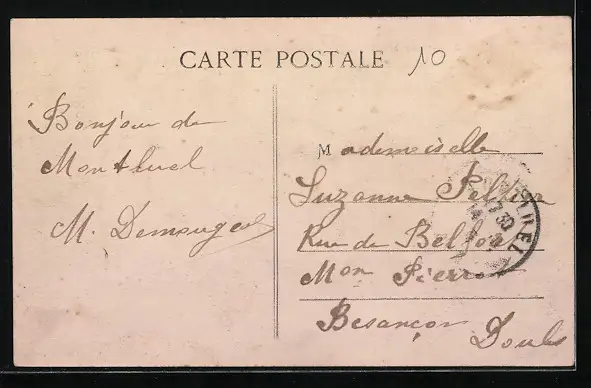 CARTE POSTALE
10
Bonjour de
Monthuel
M. Demouge
Mademoiselle
Suzanne
Rue de Belfort
Mon Pierre
Besançon
Doubs